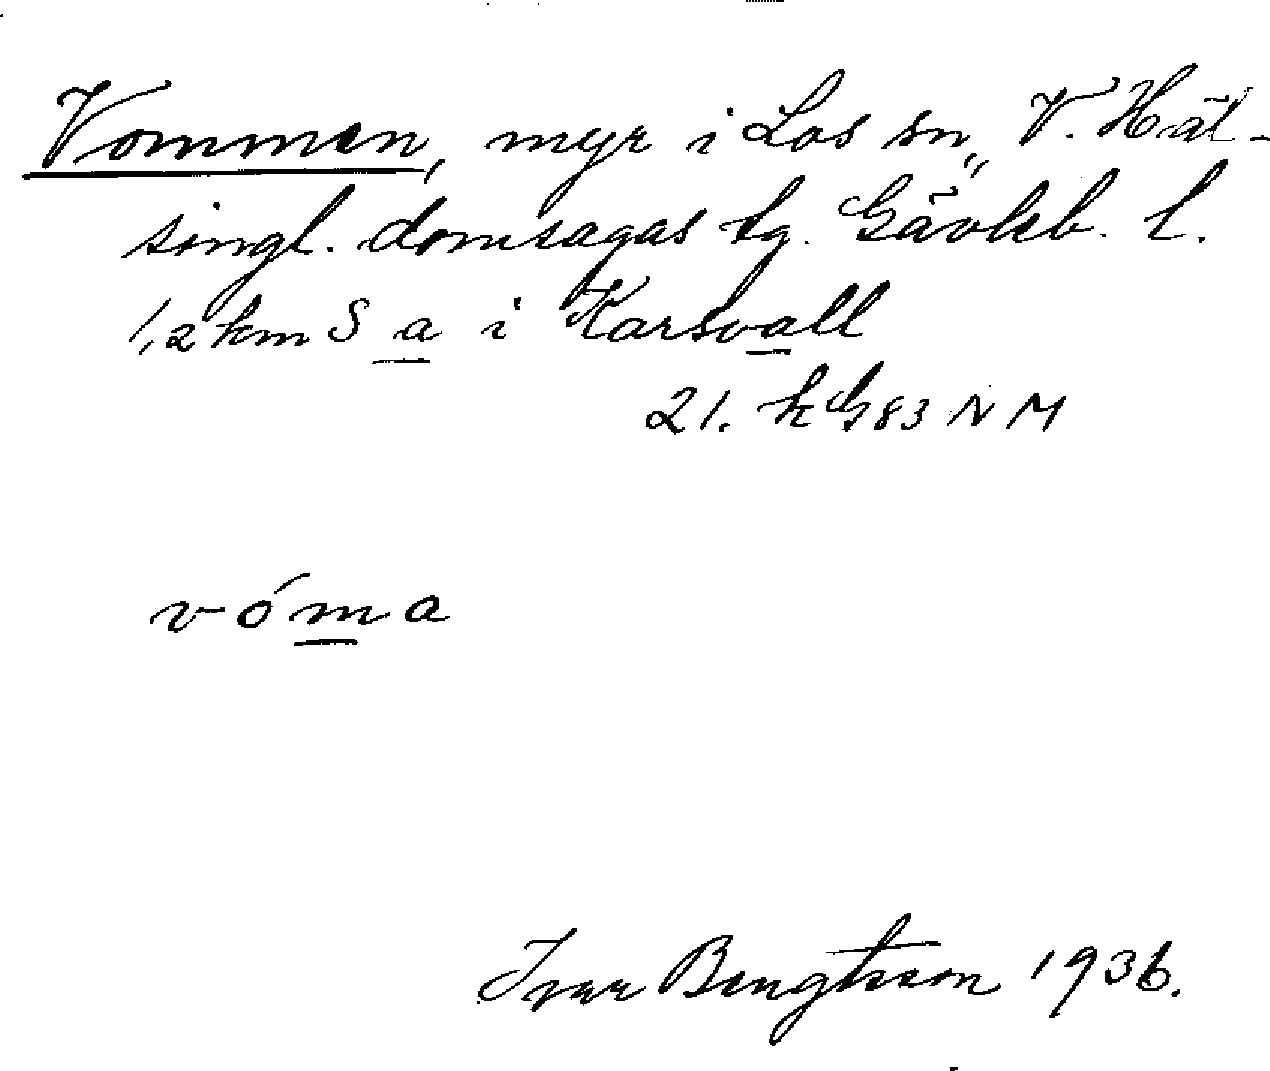 Vommen, myr i Los sn, V. Häl-
singl. domsagas tg. Gävleb. l.
1,2 km S a i Karsvall
21. k G83 N M
vóma
Ivar Bengtsson 1936.